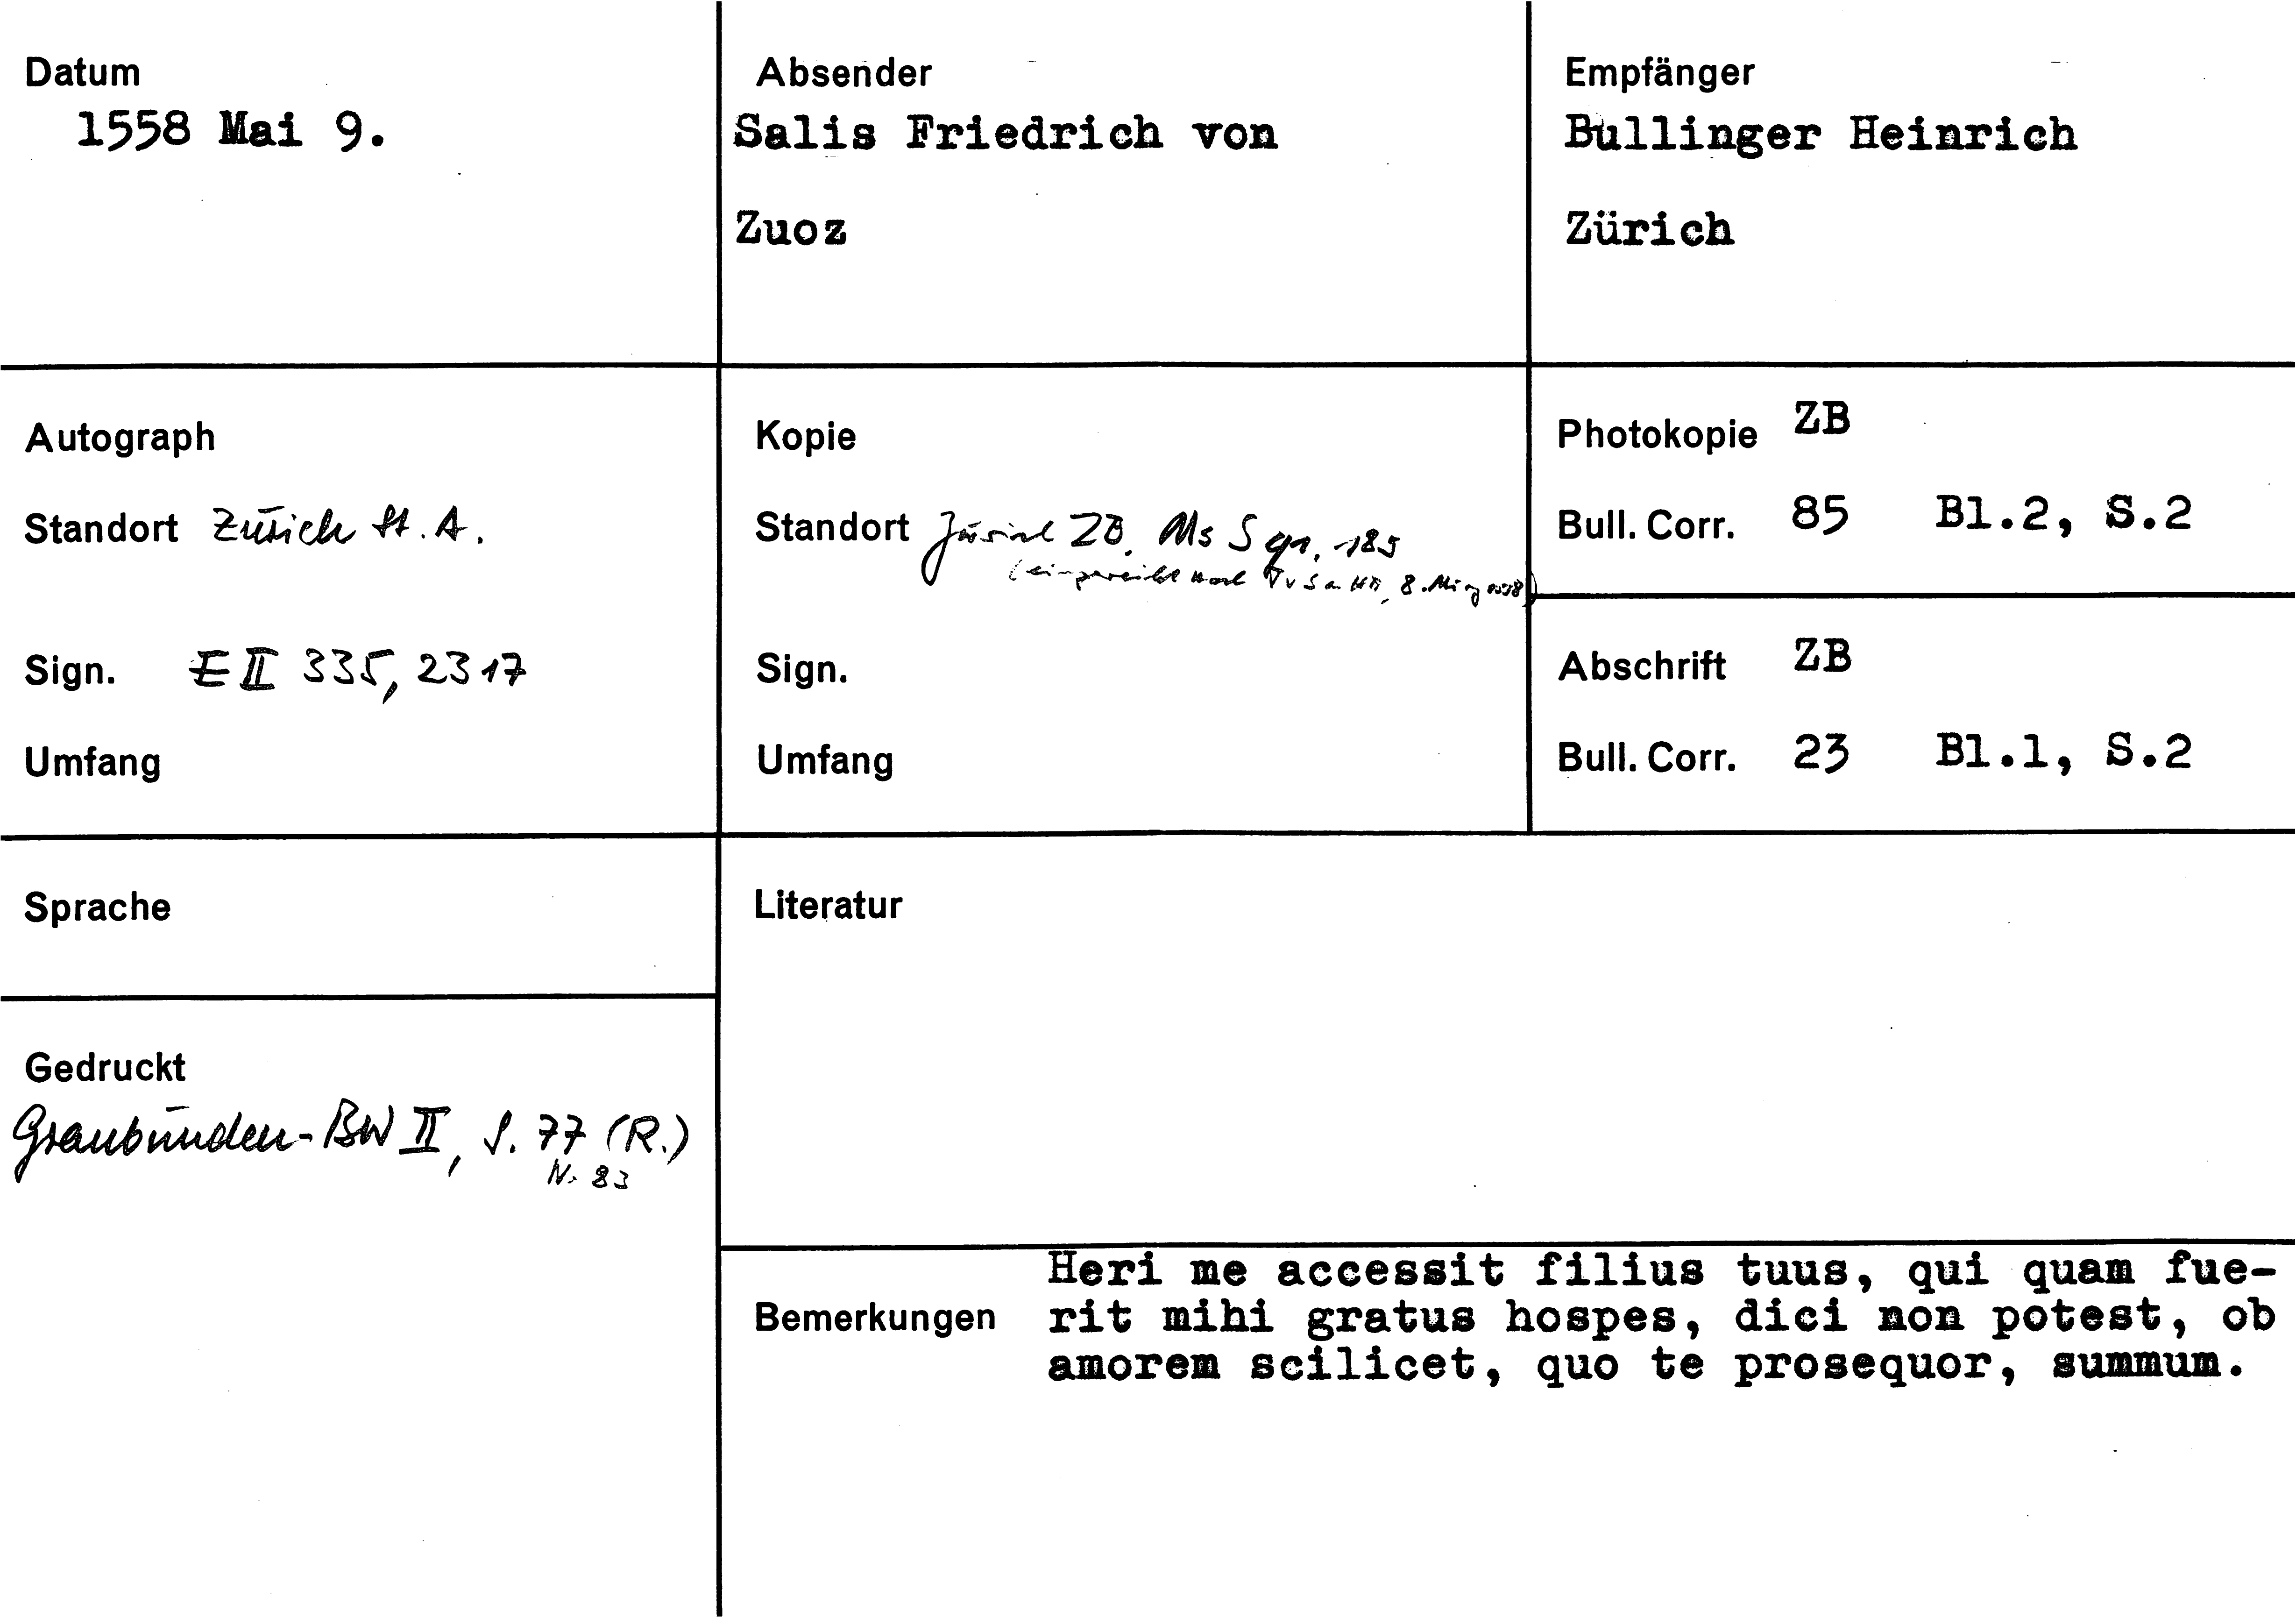 Datum
1558 Mai 9.
Absender
Salis Friedrich von
Zuoz
Empfänger
Bullinger Heinrich
Zürich
Autograph
Standort Zürich St.A.
Sign. E II 335, 2317
Umfang
Kopie
Standort Zürich ZB, Ms S 185
8. März 1558)
Sign.
Umfang
Photokopie ZB
Bull. Corr. 85 Bl.2, S.2
Abschrift ZB
Bull. Corr. 23 Bl.1, S.2
Sprache
Gedruckt
Graubünden-BW II, S. 77 (R.)
Nr 83
Literatur
Bemerkungen
Heri me accessit filius tuus, qui quam fue-
rit mihi gratus hospes, dici non potest, ob
amorem scilicet, quo te prosequor, summum.